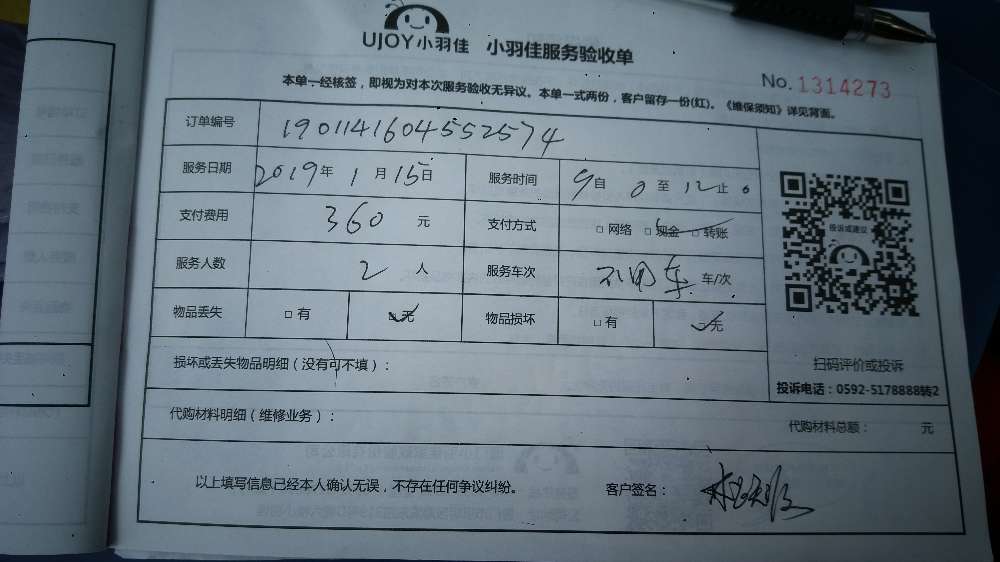 UJOY小羽佳 小羽佳服务验收单
No. 1314273
本单一经核签，即视为对本次服务验收无异议。本单一式两份，客户留存一份(红)。《维保须知》详见背面。
订单编号 1901141604552574
服务日期 2019年1月15日 服务时间 9自0至12止0
支付费用 360元 支付方式 □网络 □现金 □转账
服务人数 2人 服务车次 不用车 车/次
物品丢失 □有 □无 物品损坏 □有 □无
投诉或建议
扫码评价或投诉
损坏或丢失物品明细（没有可不填）：
投诉电话：0592-5178888转2
代购材料明细（维修业务）： 代购材料总额： 元
以上填写信息已经本人确认无误，不存在任何争议纠纷。 客户签名：